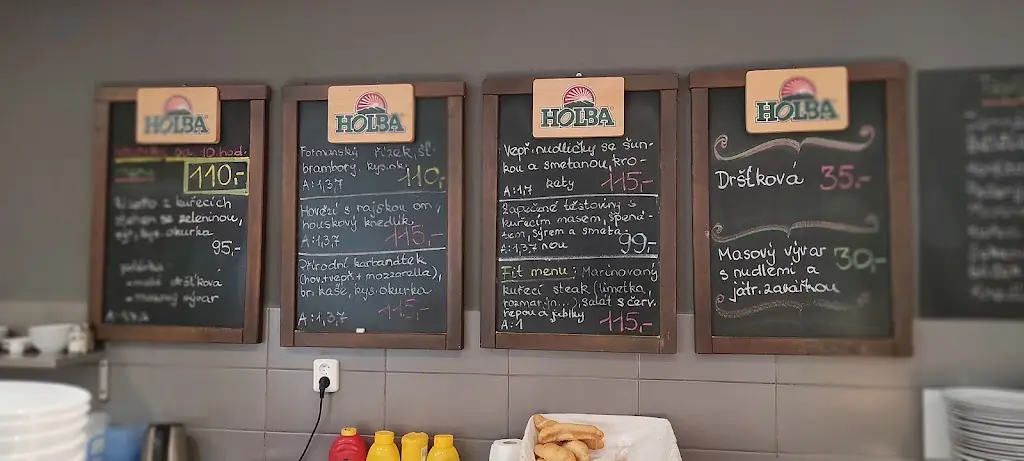 HOLBA
od 10 hod.
menu
110,-
Rizoto z kuřecích
stehen se zeleninou,
sýr, kys. okurka
95,-
polévka
dršťková
masový vývar
HOLBA
řízek, št.
brambory, kys.ok.
A:1,3,7
110,-
Hovězí s rajskou om.,
houskový knedlík
A:1,3,7
115,-
Přírodní karbanátek
(hov.+vepř.+mozzarella),
br. kaše, kys.okurka
A:1,3,7
115,-
HOLBA
Vepř. nudličky se šun-
kou a smetanou, kro-
A:1,7 kety 115,-
Zapečené těstoviny s
kuřecím masem, špená-
tem, sýrem a smeta-
A:1,3,7 nou 99,-
Fit menu: Marinovaný
kuřecí steak (limetka,
rozmarýn...), salát s červ.
řepou a jablky
A:1 115,-
HOLBA
Dršťková 35.-
Masový vývar 30,-
s nudlemi a
játr. zavářkou